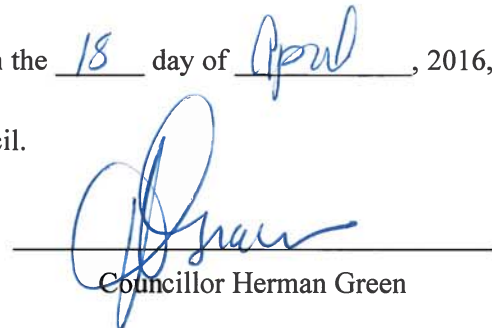 the 18 day of April, 2016,
cil.
Councillor Herman Green